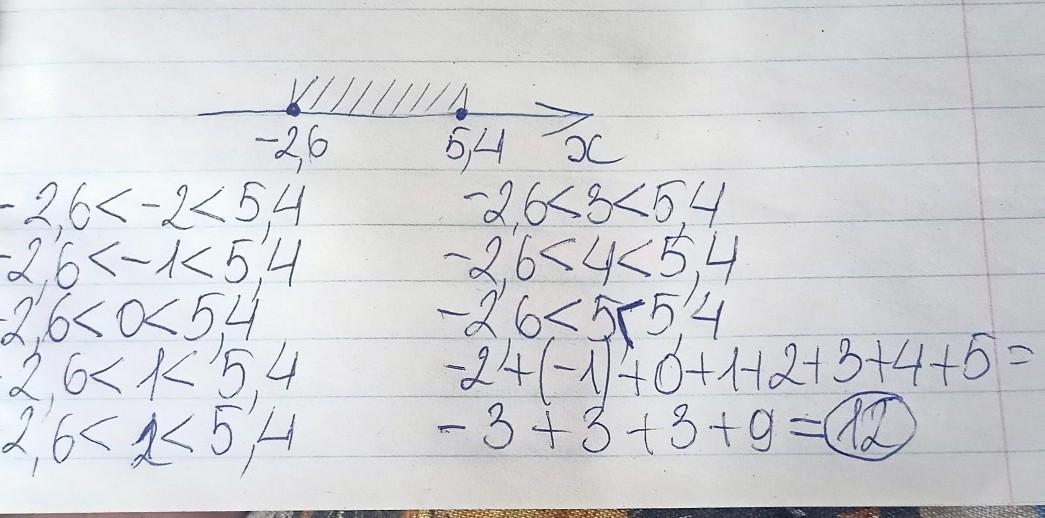 -2,6 5,4 x
-2,6<-2<5,4
-2,6<-1<5,4
-2,6<0<5,4
-2,6<1<5,4
2,6<2<5,4
-2,6<3<5,4
-2,6<4<5,4
-2,6<5<5,4
-2+(-1)+0+1+2+3+4+5=
-3+3+3+9=12